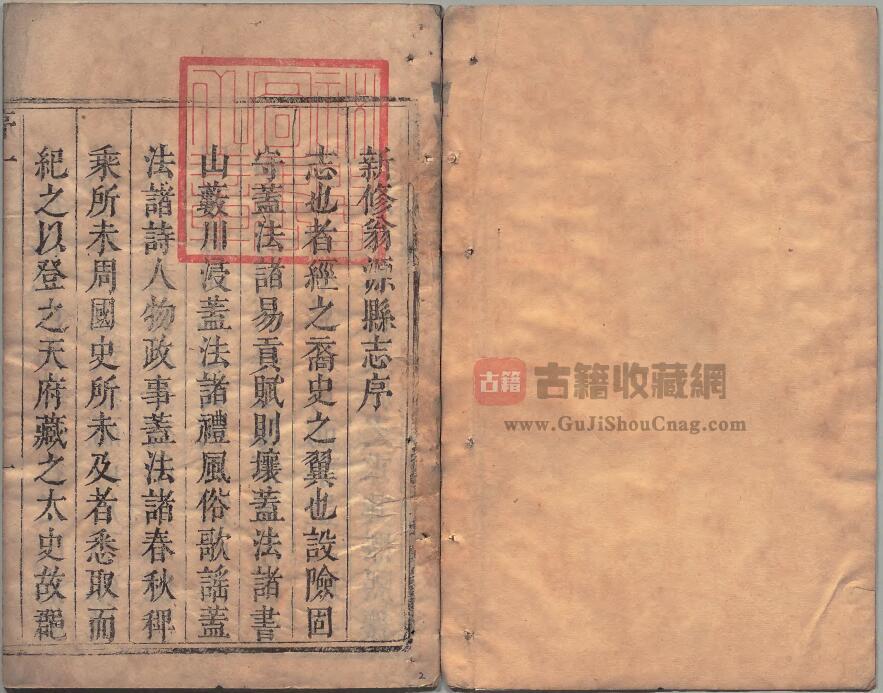 新修翁源縣志序
志也者經之裔史之翼也設險固
守蓋法諸易貢賦則壤蓋法諸書
山藪川浸蓋法諸禮風俗歌謡蓋
法諸詩人物政事蓋法諸春秋稗
乘所未周國史所未及者悉取而
紀之以登之天府藏之太史故
序一
一
2
古籍
古籍收藏網
www.GuJiShouCnag.com